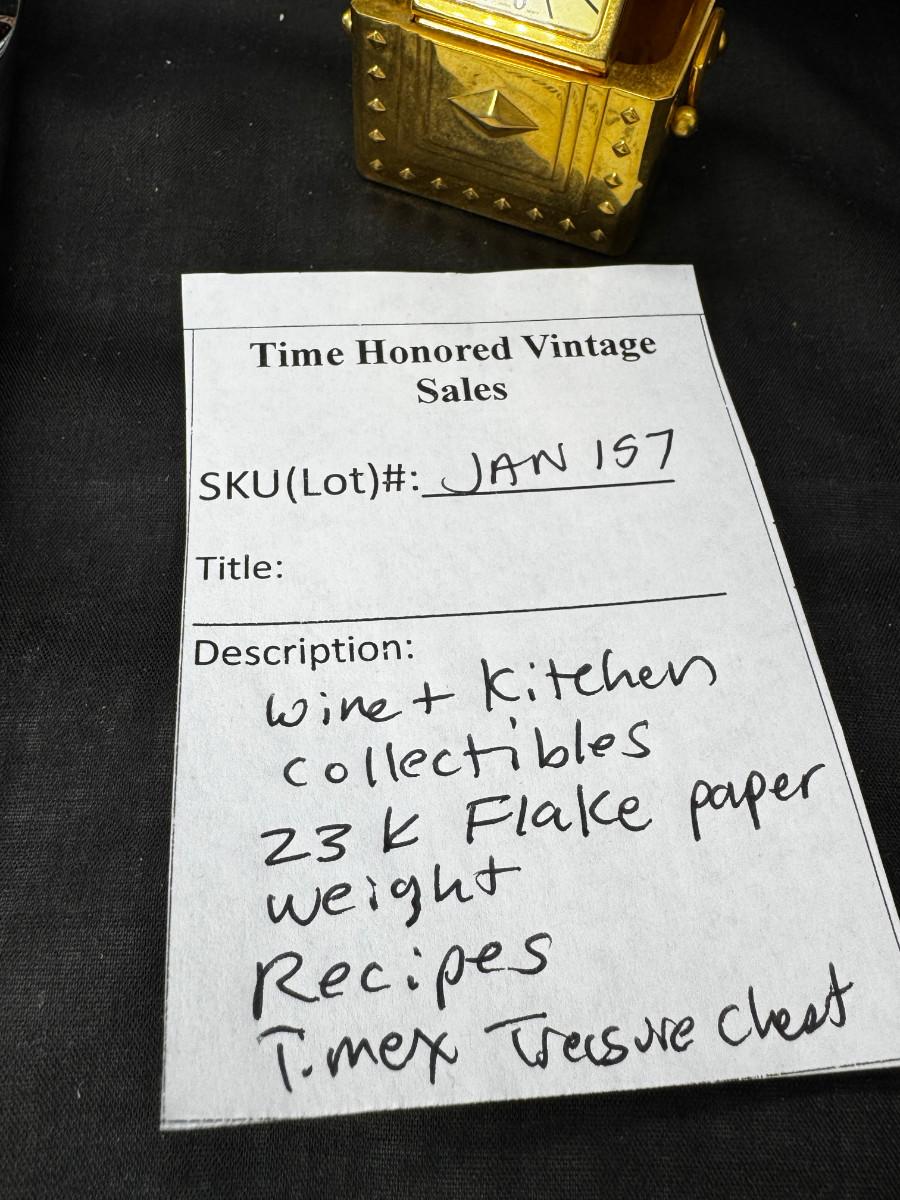 Time Honored Vintage
Sales
SKU(Lot)#: JAN 157
Title:
Description:
Wine + Kitchen
Collectibles
23 K Flake paper
weight
Recipes
Timex Treasure Chest